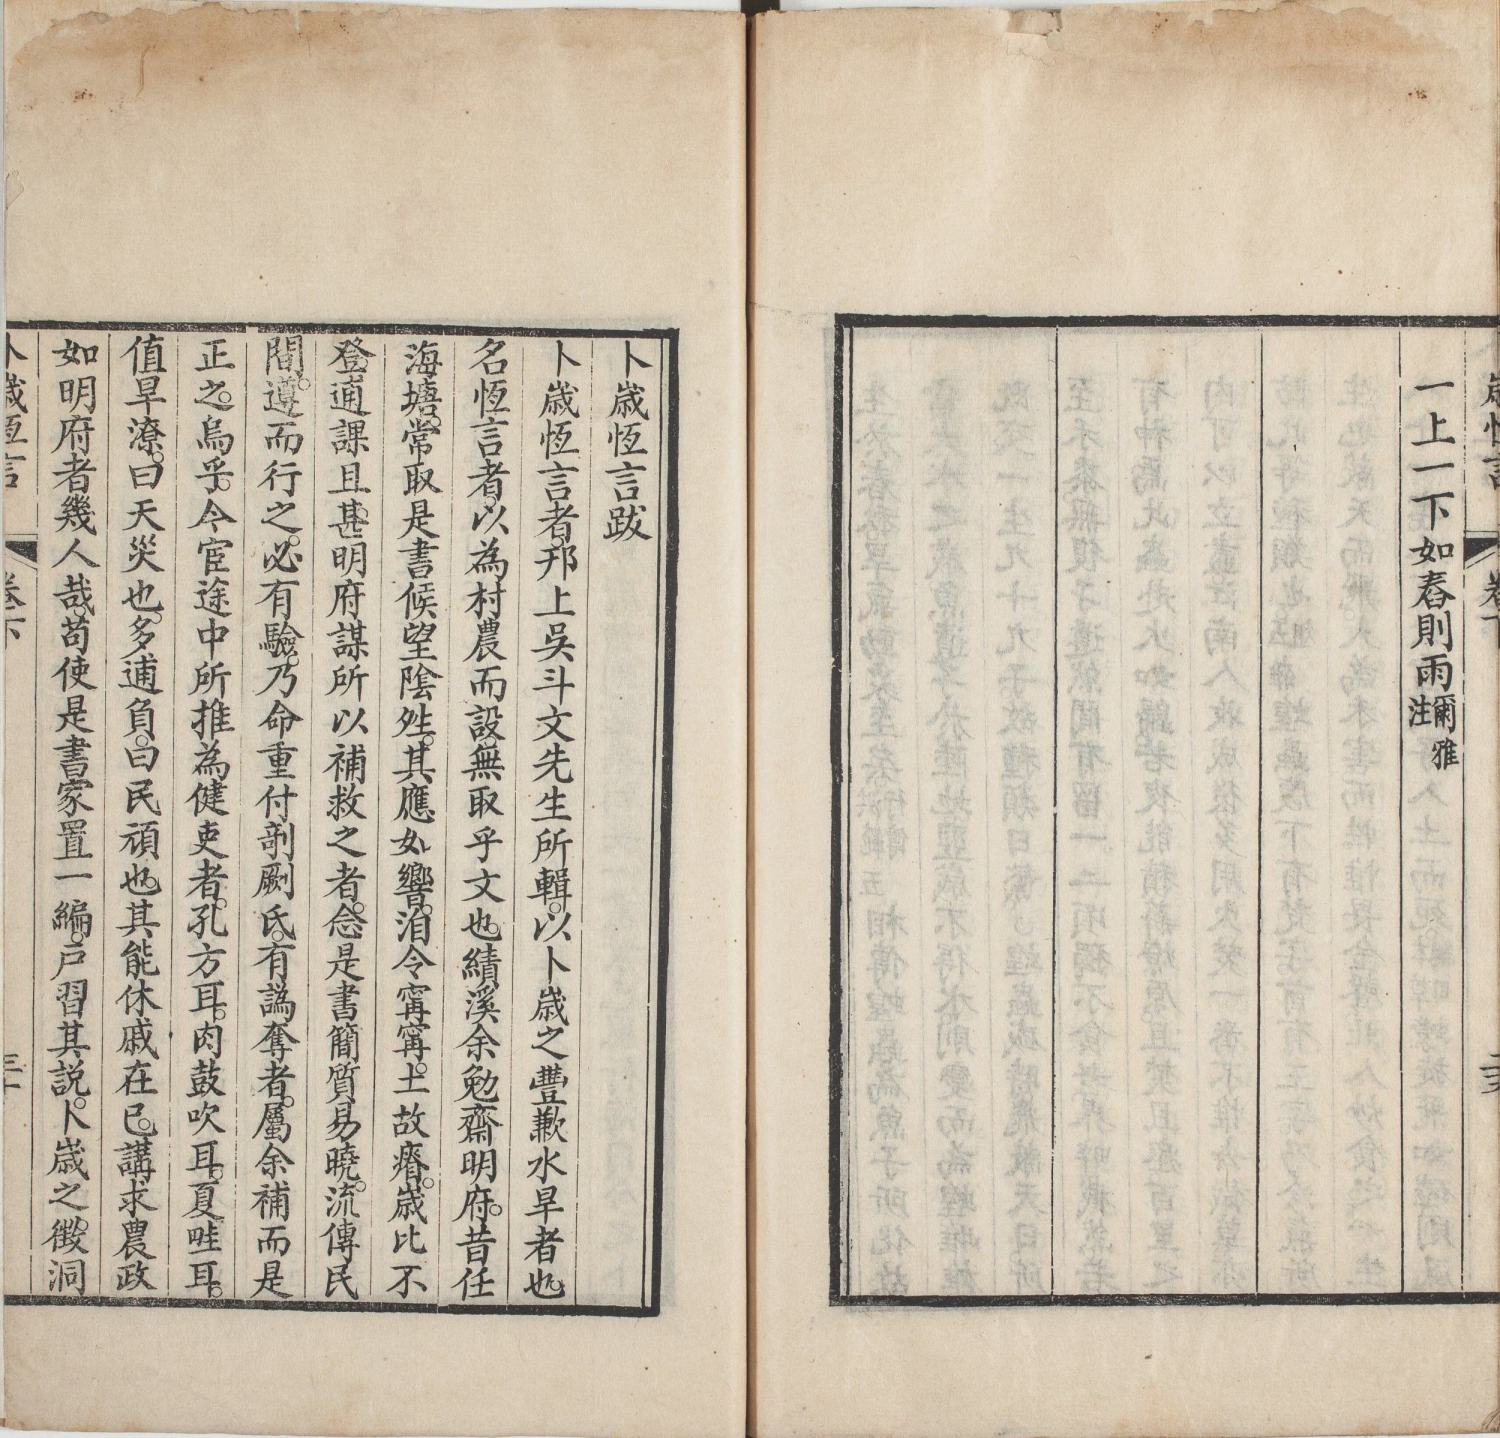 一上一下如舂則雨爾雅注
卜歲恆言跋
卜歲恆言者邗上吳斗文先生所輯。以卜歲之豐歉水旱者也。
名恆言者。以為村農而設。無取乎文也。績溪余勉齋明府。昔任
海塘。常取是書候望陰甠。其應如響。洎令甯甯。土故瘠。歲比不
登。逋課且甚。明府謀所以補救之者。念是書簡質易曉。流傳民
間。遵而行之。必有驗。乃命重付剞劂氏。有譌奪者。屬余補而是
正之。烏乎。今宦途中所推為健吏者。孔方耳。肉鼓吹耳。夏畦耳。
值旱潦。曰天災也。多逋負。曰民頑也。其能休戚在已。講求農政
如明府者幾人哉。苟使是書家置一編。戶習其說。卜歲之徵。洞
卜歲恆言
卷下